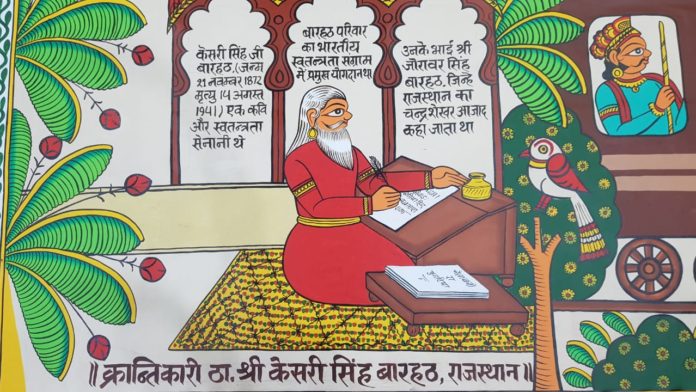 केसरी सिंह जी
बारहठ, (जन्म
21 नवम्बर 1872
मृत्यु 14 अगस्त
1941) एक कवि
और स्वतन्त्रता
सेनानी थे
बारहठ परिवार
का भारतीय
स्वतन्त्रता संग्राम
में प्रमुख योगदान था
उनके भाई श्री
जोरावर सिंह
बारहठ, जिन्हे
राजस्थान का
चन्द्र शेखर आजाद
कहा जाता था
॥ क्रान्तिकारी ठा. श्री केसरी सिंह बारहठ, राजस्थान ॥